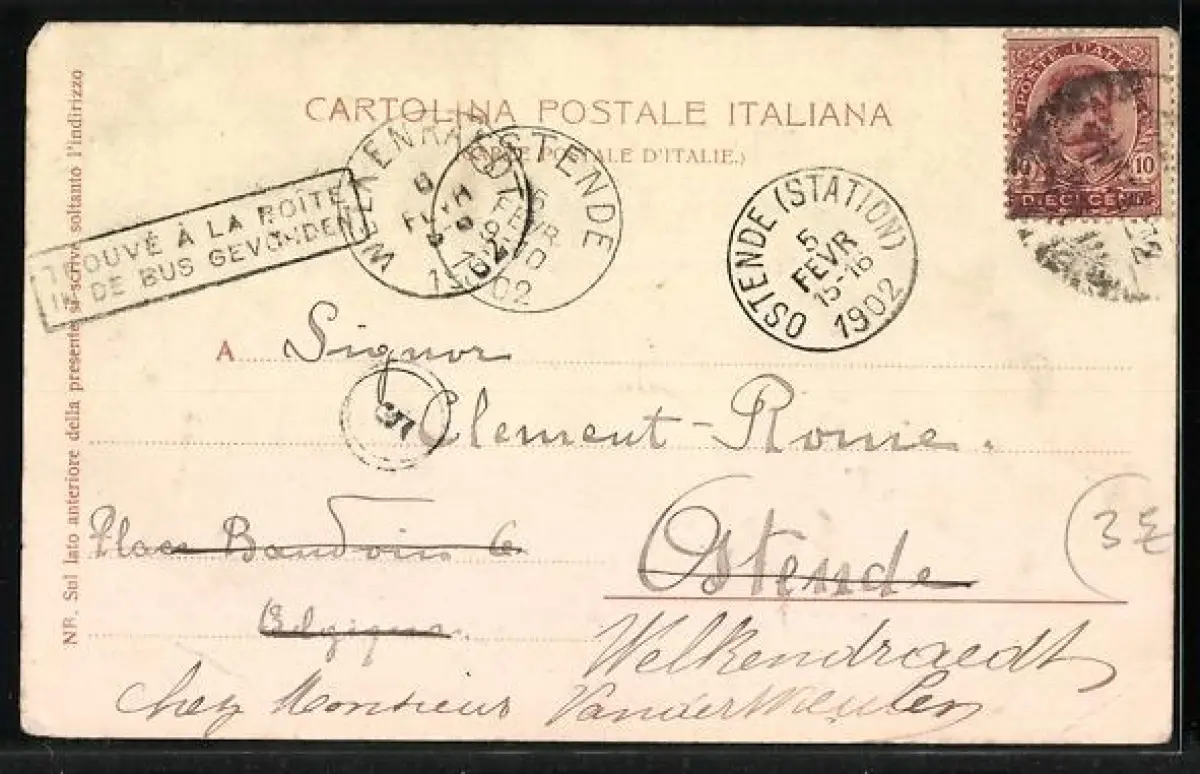 CARTOLINA POSTALE ITALIANA
POSTALE D'ITALIE.)
POSTE ITAL
10
DIECI CENT.
TROUVÉ À LA BOITE
IN DE BUS GEVONDEN
OSTENDE
02
1902
OSTENDE (STATION)
5
FEVR
15-16
1902
NB. Sul lato anteriore della presente si scrive soltanto l'indirizzo
A Signor
Clement-Rome.
Place Baudoin 6
Ostende
Belgique
Welkendraedt
chez Monsieur Vandermeulen
(3£